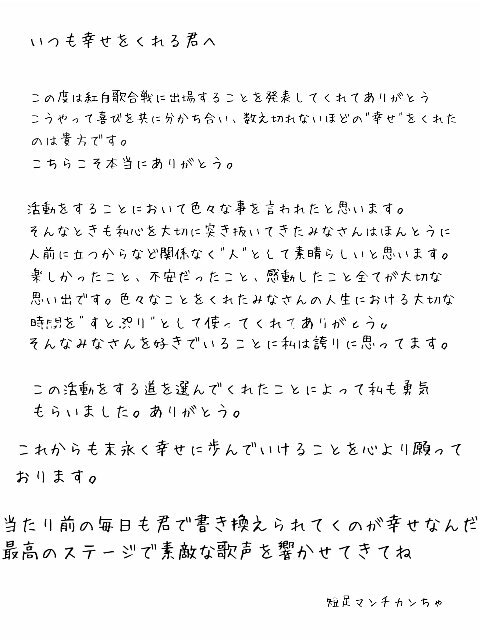 いつも幸せをくれる君へ
この度は紅白歌合戦に出場することを発表してくれてありがとう
こうやって喜びを共に分かち合い、数え切れないほどの"幸せ"をくれた
のは貴方です。
こちらこそ本当にありがとう。
活動をすることにおいて色々な事を言われたと思います。
そんなときも私心を大切に突き抜いてきたみなさんはほんとうに
人前に立つからなど関係なく"人"として素晴らしいと思います。
楽しかったこと、不安だったこと、感動したこと全てが大切な
思い出です。色々なことをくれたみなさんの人生における大切な
時間を"すとぷり"として使ってくれてありがとう。
そんなみなさんを好きでいることに私は誇りに思ってます。
この活動をする道を選んでくれたことによって私も勇気
もらいました。ありがとう。
これからも末永く幸せに歩んでいけることを心より願って
おります。
当たり前の毎日も君で書き換えられてくのが幸せなんだ
最高のステージで素敵な歌声を響かせてきてね
短足マンチカンちゃ